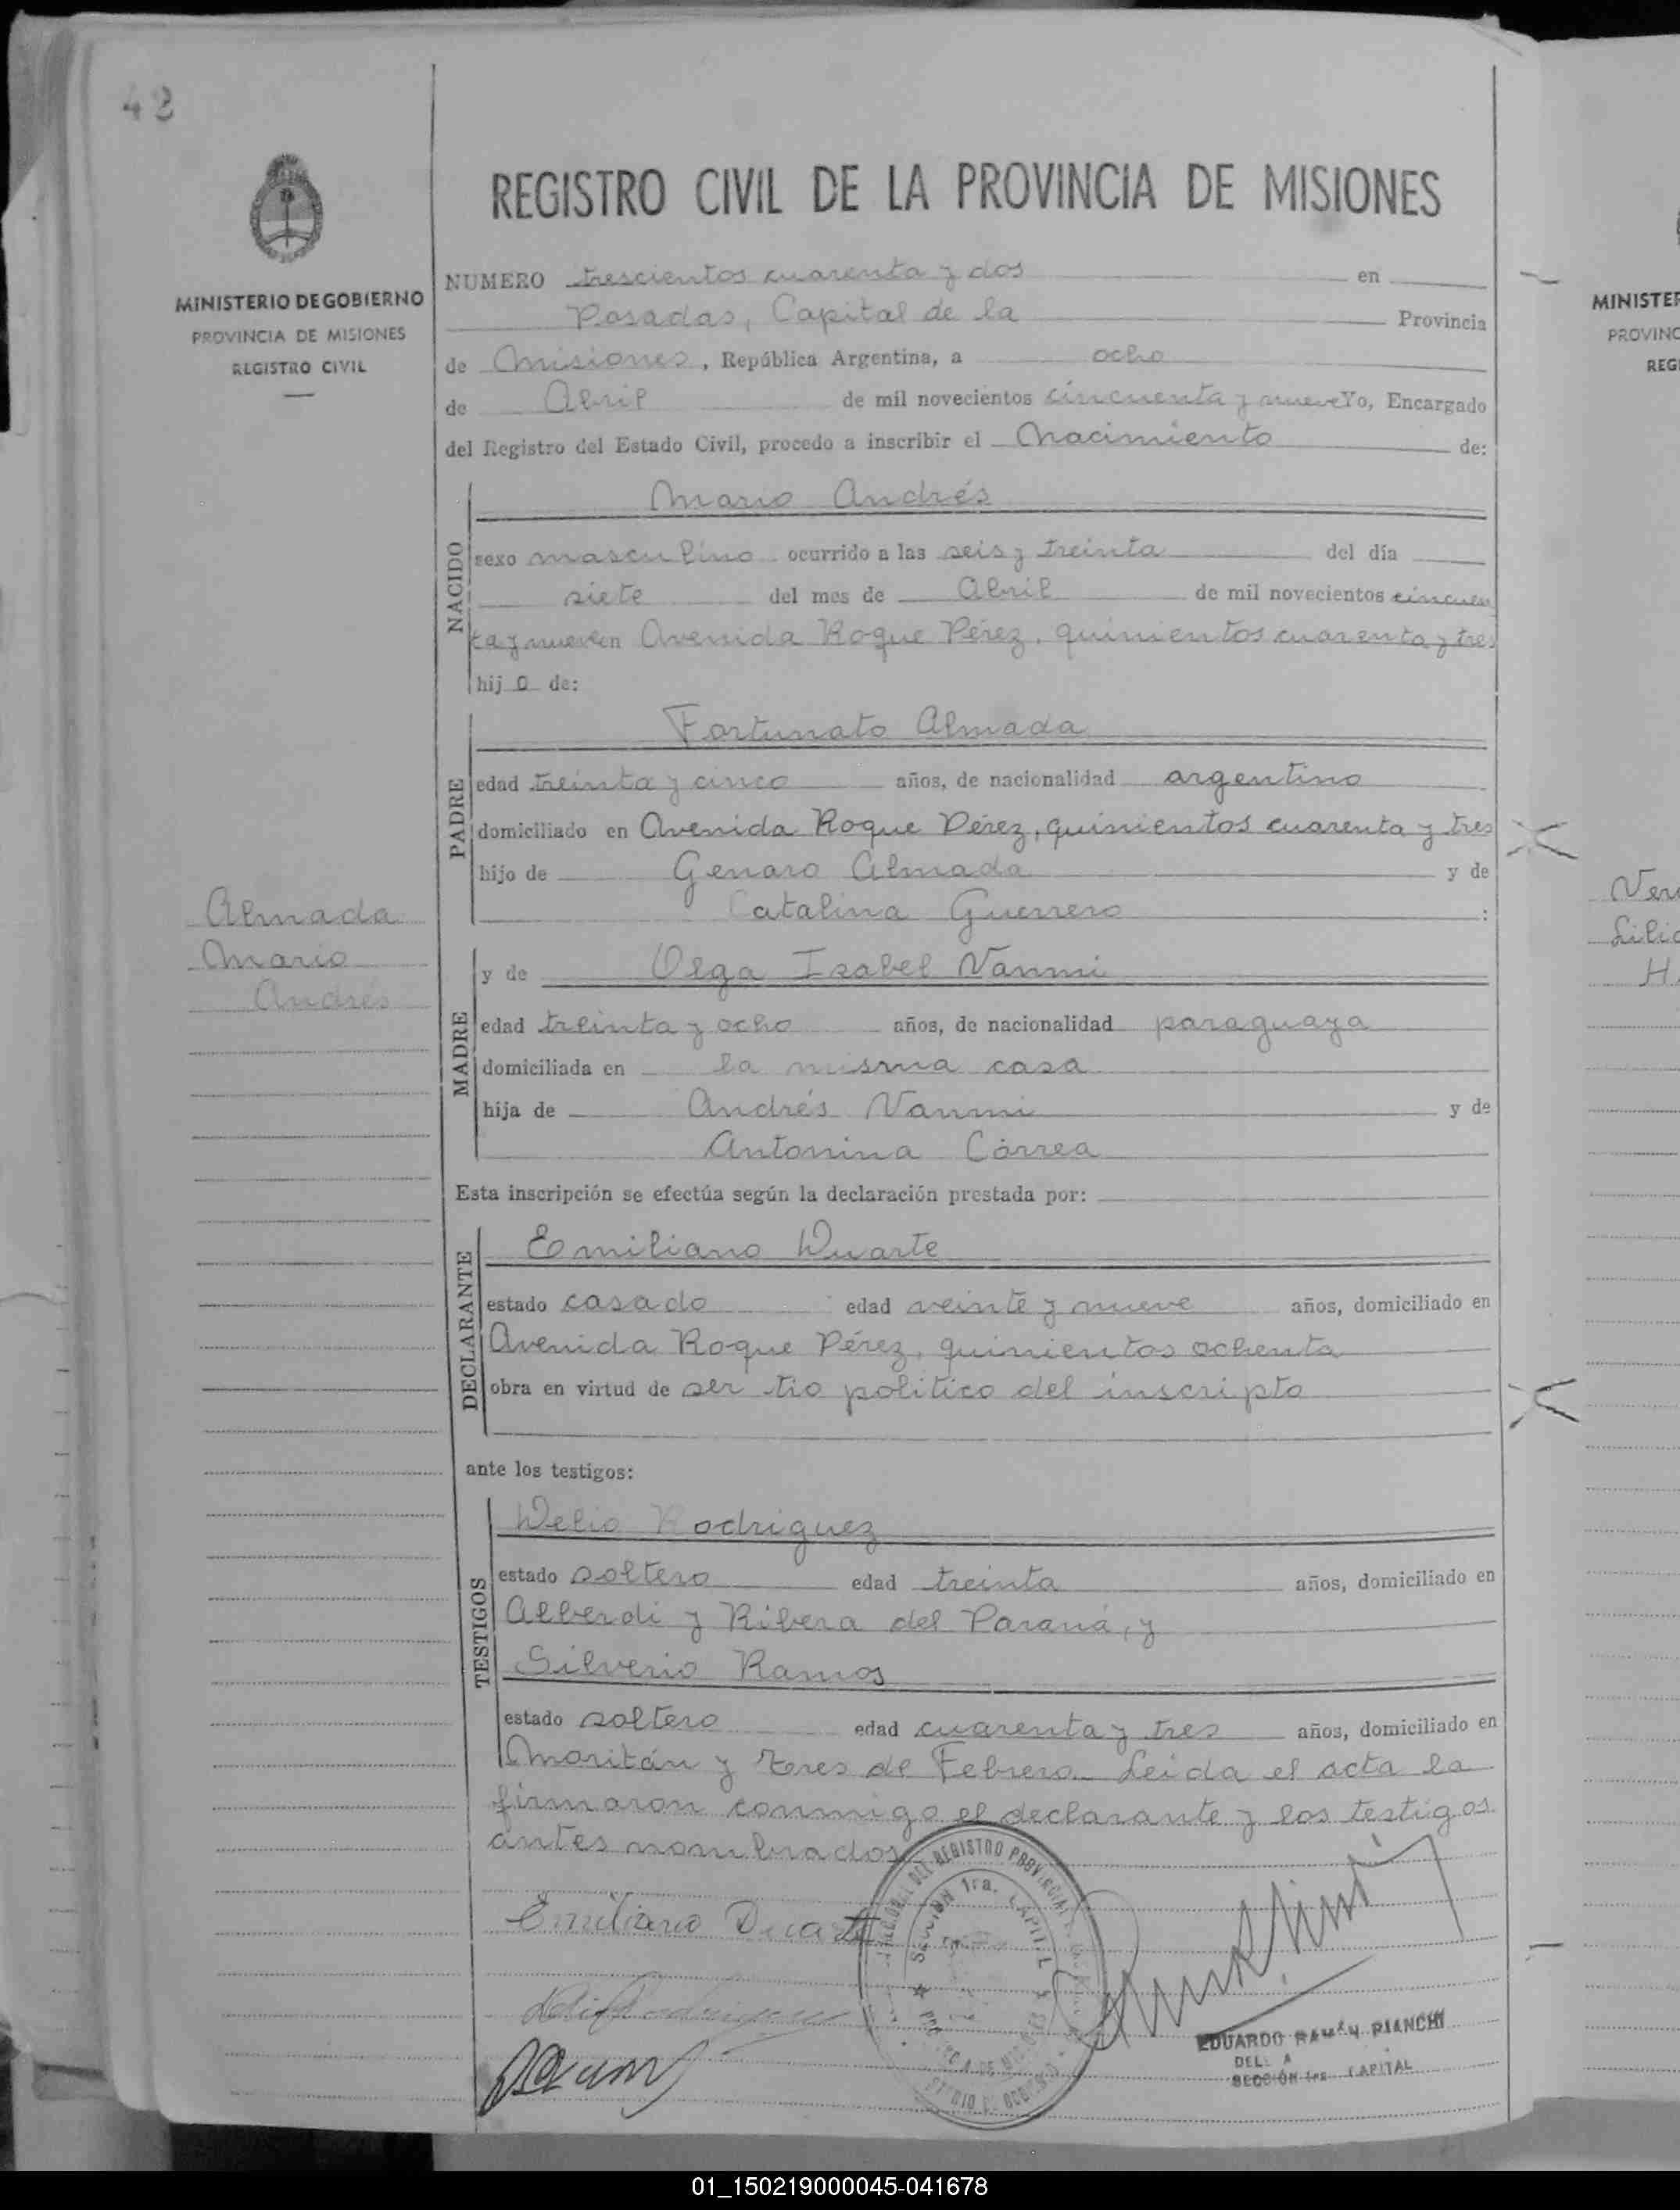 42
MINISTERIO DE GOBIERNO
PROVINCIA DE MISIONES
REGISTRO CIVIL
Almada
Mario
Andrés
REGISTRO CIVIL DE LA PROVINCIA DE MISIONES
NUMERO trescientos cuarenta y dos en
Posadas, Capital de la Provincia
de Misiones, República Argentina, a ocho
de Abril de mil novecientos cincuenta y nueve Yo, Encargado
del Registro del Estado Civil, procedo a inscribir el Nacimiento de:
NACIDO
Mario Andrés
sexo masculino ocurrido a las seis y treinta del día
siete del mes de Abril de mil novecientos cincuen
ta y nueve en Avenida Roque Pérez, quinientos cuarenta y tres
hij o de:
PADRE
Fortunato Almada
edad treinta y cinco años, de nacionalidad argentino
domiciliado en Avenida Roque Pérez, quinientos cuarenta y tres
hijo de Genaro Almada y de
Catalina Guerrero :
MADRE
y de Olga Isabel Vanni
edad treinta y ocho años, de nacionalidad paraguaya
domiciliada en la misma casa
hija de Andrés Vanni y de
Antonina Córrea
Esta inscripción se efectúa según la declaración prestada por:
DECLARANTE
Emiliano Duarte
estado casado edad veinte y nueve años, domiciliado en
Avenida Roque Pérez, quinientos ochenta
obra en virtud de ser tio politico del inscripto
ante los testigos:
TESTIGOS
Delio Rodriguez
estado soltero edad treinta años, domiciliado en
Alberdi y Ribera del Paraná, y
Silverio Ramos
estado soltero edad cuarenta y tres años, domiciliado en
Moritán y tres de Febrero. Leida el acta la
firmaron conmigo el declarante y los testigos
antes nombrados
Emiliano Duarte
SECCION 1ra. CAPITAL
EDUARDO RAMÓN BIANCHI
SECCIÓN 1ra CAPITAL
MINISTER
PROVINC
REGI
Ven
Lilia
H.
01_150219000045-041678